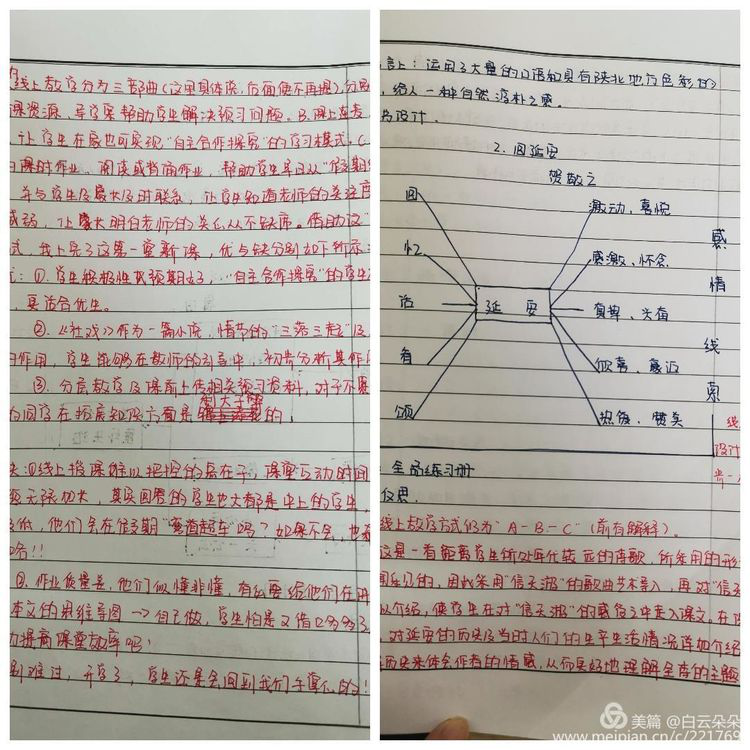 线上教学分为三部曲(这里具体谈,后面便不再提)分别
课资源、导学案帮助学生解决预习问题。B.课上在麦
让学生在家也可实现"自主合作探究"的学习模式,C
课时作业、阅读或书面作业,帮助学生早日从"假期
并与学生及家长及时联系,让学生知道老师的关注度
减弱,让家长明白老师的关心从不缺席。借助这"
式,我上完了这第一堂新课,优与缺分别如下所示:
:①.学生积极性比预期好,"自主合作探究"的学生
,更适合优生。
②.《社戏》作为一篇小说,情节的"三落三起"及
的作用,学生能够在教师的引导中,初步分析其作用
③.分层教学及课前上传相关预习资料,对于不
的同学在拓展知识方面是有大子帮的,
:①线上授课难以把控的点在于,课堂互动的时间
无限加大,其实回答的学生也大都是中上的学生,
低,他们会在假期"弯道超车"吗?如果不会,也
!!
②.作业质量差,他们似懂非懂,有必要给他们在
本文的思维导图→自己做,学生怕是又借口多多了
提高课堂效率吗!
别难过,开学了,学生还是会回到我们手掌心的!!
言上:运用了大量的口语和具有陕北地方色彩的
,给人一种自然淳朴之感。
书设计.
2.回延安
贺敬之
回 激动、喜悦
忆 感激、怀念
话 延安 自豪、
看 欣喜、
颂 热爱、赞美
感情线索
线
设计
:全品练习册
反思.
线上教学方式仍为"A-B-C"(前有解释)。
这是一首距离学生所处年代较远的诗歌,所采用的形
罕见的,因此采用"信天游"的歌曲艺术导入,再对"信天
以介绍,使学生在对"信天游"的感官之中走入课文。在
,对延安的历史及当时人们的生产生活情况详加介绍
历史来体会作者的情感,从而更好地理解全诗的主题
美篇 @白云朵朵
www.meipian.cn/c/221769